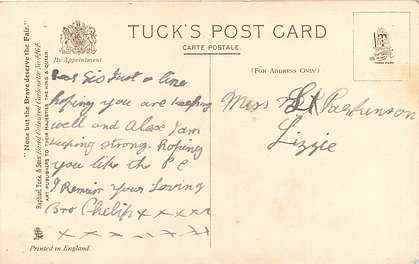 "None but the Brave deserve the Fair."
Raphael Tuck & Sons'
ART PUBLISHERS TO THEIR MAJESTIES THE KING & QUEEN.
TUCK'S POST CARD
CARTE POSTALE.
By Appointment.
(FOR ADDRESS ONLY.)
Dear Sis Just a line
hoping you are keeping
well and Alace I am
keeping strong. hoping
you like the P C
I Remain Your Loving
Bro Philip x x x x x
x x x x x x x
Miss Parkinson
Lizzie
Printed in England.